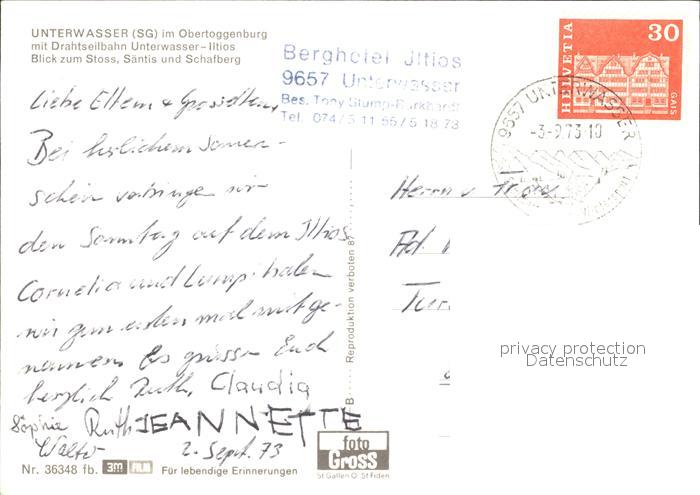 UNTERWASSER (SG) im Obertoggenburg
mit Drahtseilbahn Unterwasser–Iltios
Blick zum Stoss, Säntis und Schafberg
Berghotel Iltios
9657 Unterwasser
Bes. Tony Stump-Burkhardt
Tel. 074/5 11 55/5 18 73
HELVETIA
30
GAIS
9657 UNTERWASSER
-3-9.73-10
Liebe Eltern + Grosseltern,
Bei herlichem Sonnen-
schein verbringe wir
den Sonntag auf dem Iltios
Cornelia und Lumpi haben
wir zum ersten mal mitge-
nommen. Es grüsse Euch
herzlich Ruth, Claudia
Sophie Ruth JEANNETTE
Walter 2. Sept. 73
Herrn + Frau
Ad.
Reproduktion verboten
privacy protection
Datenschutz
foto
Gross
St Gallen O. St Fiden
Nr. 36348 fb. 3M FILM Für lebendige Erinnerungen